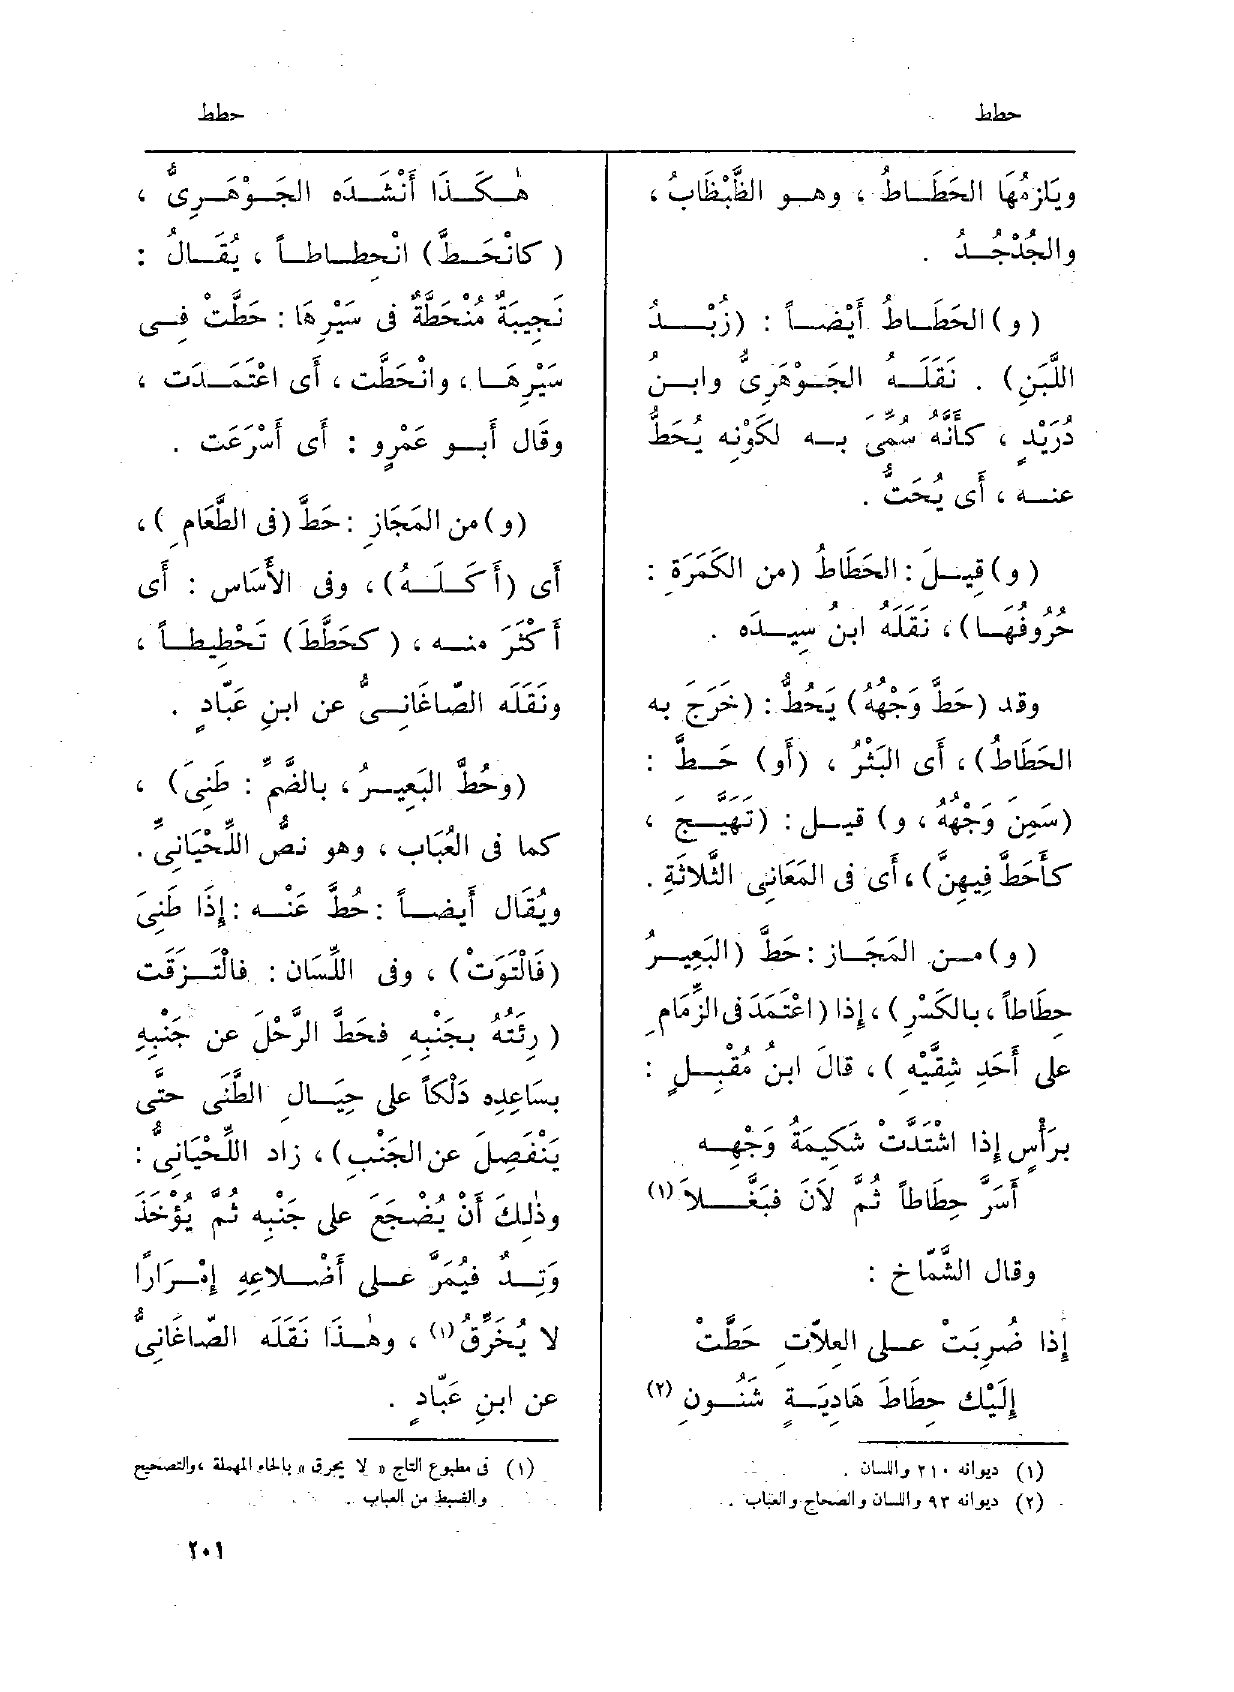 حطط
حطط
ويَلزمُهَا الحَطَاطُ ، وهو الظَّبْظَابُ ،
والجُدْجُدُ .
(و) الحَطَاطُ أَيْضاً : (زُبْدُ
اللَّبَنِ) . نَقَلَهُ الجَوْهَرِىُّ وابنُ
دُرَيْدٍ ، كأَنَّهُ سُمِّىَ به لكَوْنِه يُحَطُّ
عنه ، أَى يُحَتُّ .
(و) قِيلَ : الحَطَاطُ (من الكَمَرَةِ :
حُرُوفُهَا) ، نَقَلَهُ ابن سِيدَه .
وقد (حَطَّ وَجْهُهُ) يَحُطُّ : (خَرَجَ به
الحَطَاطُ) ، أَى البَثْرُ ، (أَو) حَطَّ :
(سَمِنَ وَجْهُهُ ، و) قيل : (تَهَيَّجَ ،
كأَحَطَّ فِيهِنَّ) ، أَى فى المَعَانِى الثَّلاثَةِ .
(و) من المَجَاز : حَطَّ (البَعِيرُ
حِطَاطاً ، بالكَسْرِ) ، إذا (اعْتَمَدَ فى الزِّمَامِ
على أَحَدِ شِقَّيْهِ) ، قالَ ابنُ مُقْبِلٍ :
برَأْسٍ إذا اشْتَدَّتْ شَكِيمَةُ وَجْهِه
أَسَرَّ حِطَاطاً ثُمَّ لاَنَ فبَغَّلاَ (١)
وقال الشَّمّاخ :
إذا ضُرِبَتْ على العِلاّتِ حَطَّتْ
إلَيْك حِطَاطَ هَادِيَةٍ شَنُونِ (٢)
(١) ديوانه ٢١٠ واللسان .
(٢) ديوانه ٩٣ واللسان والصحاح والعباب .
هٰكَذَا أَنْشَدَه الجَوْهَرِىُّ ،
(كانْحَطَّ) انْحِطاطاً ، يُقَالُ :
نَجِيبَةٌ مُنْحَطَّةٌ فى سَيْرِهَا : حَطَّتْ فى
سَيْرِهَا ، وانْحَطَّت ، أى اعْتَمَدَت ،
وقَال أَبو عَمْرٍو : أَى أَسْرَعَت .
(و) من المَجَازِ : حَطَّ (فى الطَّعَامِ) ،
أَى (أَكَلَهُ) ، وفى الأَسَاس : أَى
أَكْثَرَ منه ، (كحَطَّطَ) تَحْطِيطاً ،
ونَقَلَه الصّاغَانِىُّ عن ابنِ عَبّادٍ .
(وحُطَّ البَعِيرُ ، بالضَّمِّ : طَنِىَ) ،
كما فى العُبَاب ، وهو نَصُّ اللِّحْيَانِىِّ .
ويُقَال أَيضاً : حُطَّ عَنْه : إذَا طَنِىَ
(فَالْتَوَتْ) ، وفى اللِّسَان : فالْتَزَقَت
(رِئَتُهُ بجَنْبِهِ فحَطَّ الرَّحْلَ عن جَنْبِهِ
بسَاعِدِه دَلْكاً على حِيَالِ الطَّنَى حتى
يَنْفَصِلَ عن الجَنْبِ) ، زاد اللِّحْيَانِىُّ :
وذٰلِكَ أَنْ يُضْجَعَ على جَنْبِه ثُمَّ يُؤْخَذَ
وَتِدٌ فيُمَرَّ على أَضْلاعِهِ إمْرَارًا
لا يُخَرِّقُ (١) ، وهٰذَا نَقَلَه الصّاغَانِىُّ
عن ابنِ عَبّادٍ .
(١) فى مطبوع التاج « لا يحرق » بالحاء المهملة ، والتصحيح
والضبط من العباب .
٢٠١